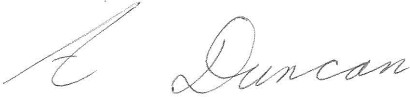 A Duncan